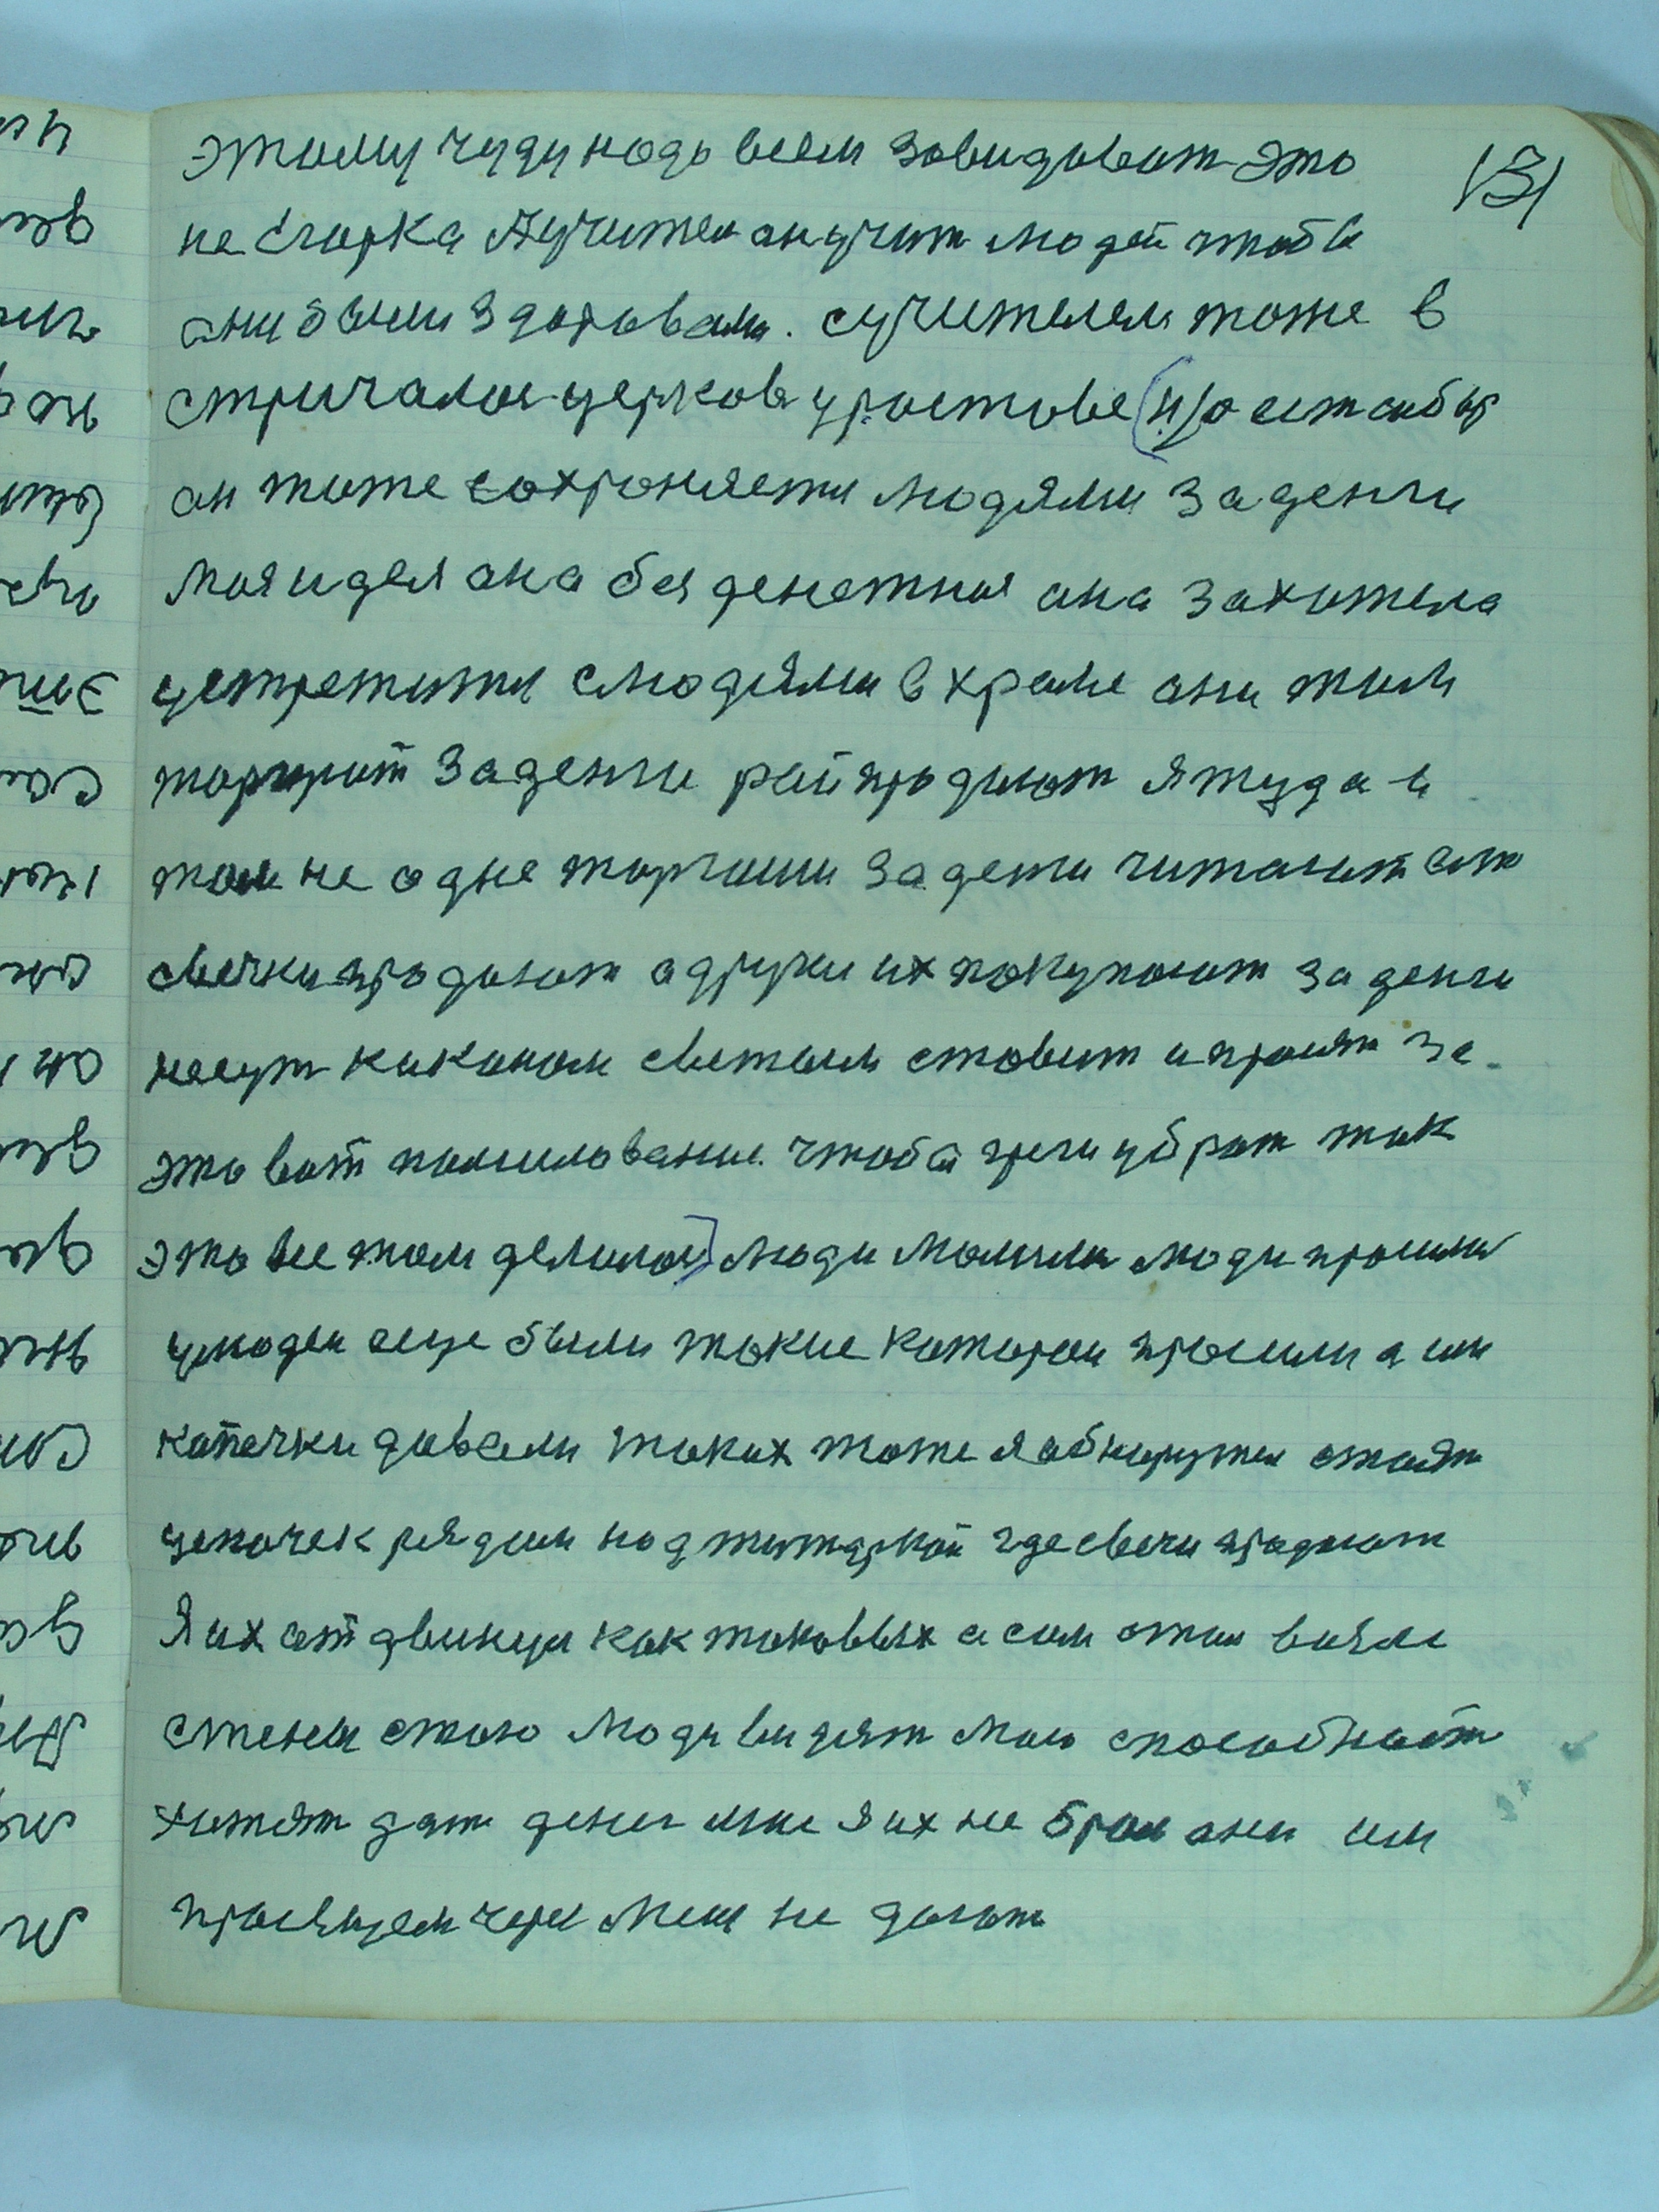 131
этому чуду надо всем завидоват это
не Егорка Аучител он учит людей чтобы
они были здоровами. сучителем тоже в
стричалос церковь уростове (н) о ест собор
он тоже сохроняется людями заденги
моя идея она без денежная она захотела
устретится слюдями в храме они там
торгуют заденги рай продают я туда и
там не одне торгаши заденги читают ст
свечки продают адруги их покупают за денги
несут киконам светым ставит и просят за
это вот помилование. чтобы грехи убрат так
это все там делалос] люди молилис люди просили
улюдей еще были такие которои просили а им
копечки давали таких тоже я обнаружил стоят
цепочек рядом под тетаркой где свечи продают
Я их отдвинул как таковых а сам стал возле
стены стою люди видят мою способност
хотят дат денег мне я их не брал они им
просящем через меня не дают